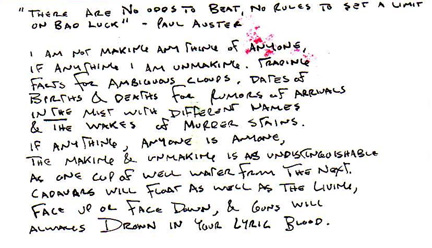 "THERE ARE NO ODDS TO BEAT, NO RULES TO SET A LIMIT
ON BAD LUCK" - PAUL AUSTER
I AM NOT MAKING ANYTHING OF ANYONE,
IF ANYTHING I AM UNMAKING. TRADING
FACTS FOR AMBIGUOUS CLOUDS, DATES OF
BIRTHS & DEATHS FOR RUMORS OF ARRIVALS
IN THE MIST WITH DIFFERENT NAMES
& THE WAKES OF MURDER STAINS.
IF ANYTHING, ANYONE IS ANYONE,
THE MAKING & UNMAKING IS AS UNDISTINGUISHABLE
AS ONE CUP OF WELL WATER FROM THE NEXT.
CADAVERS WILL FLOAT AS WELL AS THE LIVING,
FACE UP OR FACE DOWN, & GUNS WILL
ALWAYS DROWN IN YOUR LYRIC BLOOD.